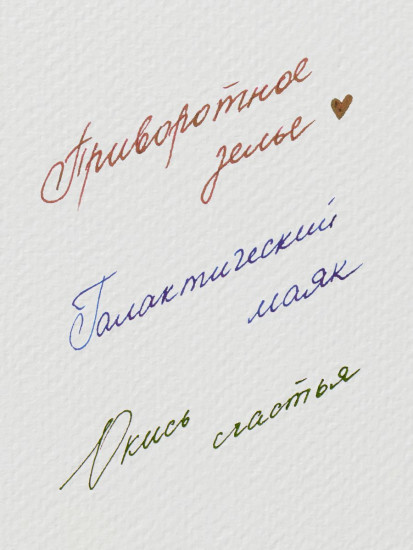 Приворотное
зелье
Галактический
маяк
Окись счастья